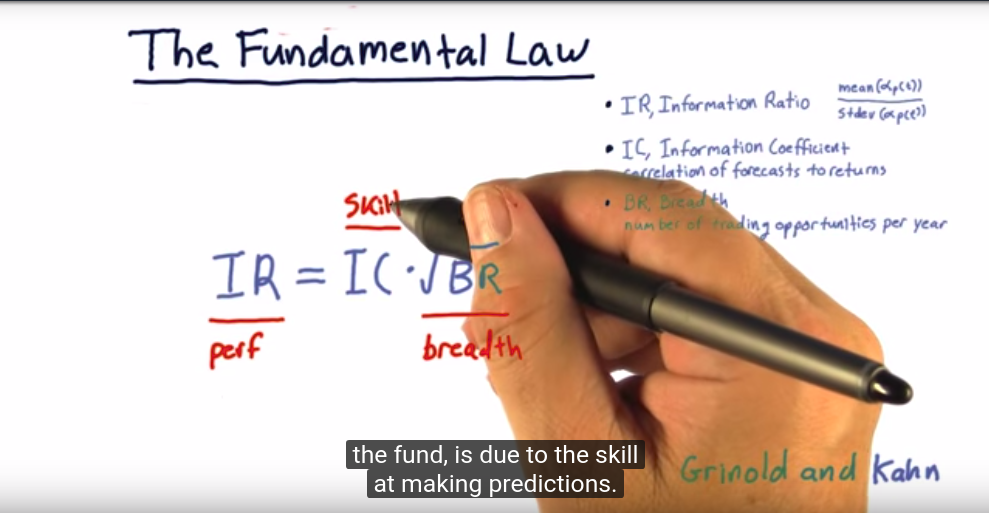 The Fundamental Law
• IR, Information Ratio mean(αp(t))
stdev(αp(t))
• IC, Information Coefficient
correlation of forecasts to returns
• BR, Breadth
number of trading opportunities per year
skill
IR = IC · √BR
perf
breadth
the fund, is due to the skill
at making predictions.
Grinold and Kahn